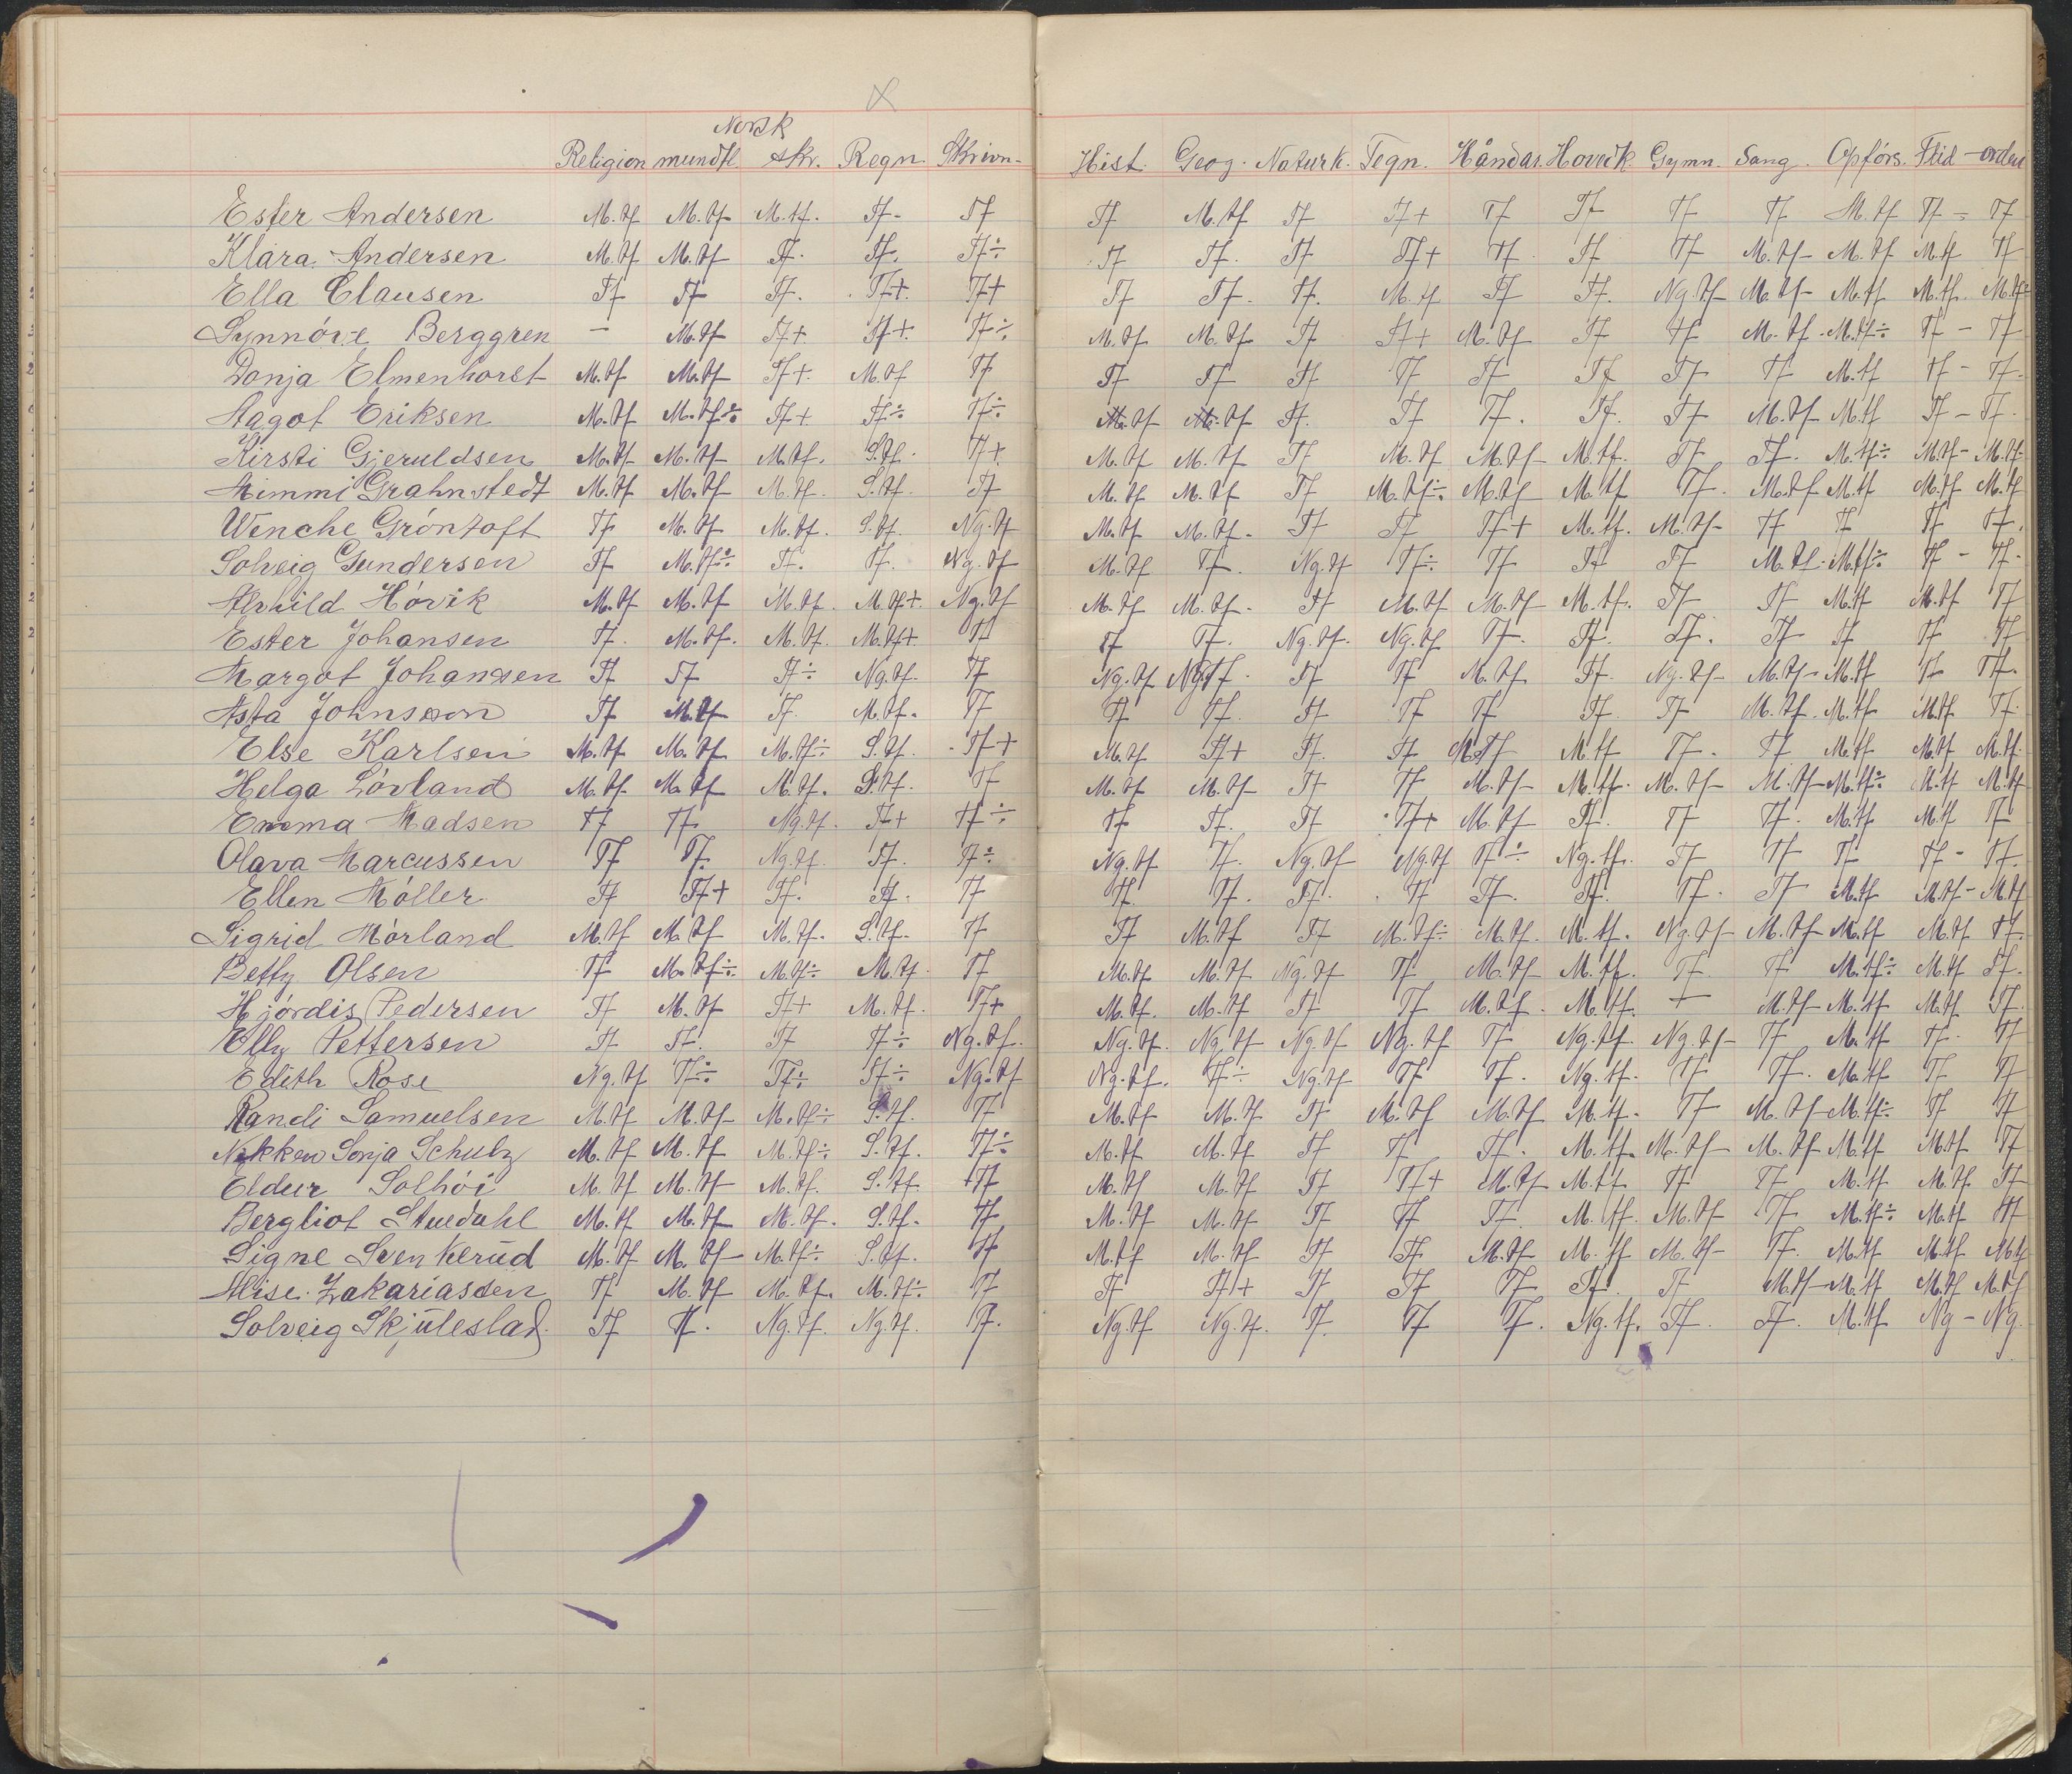 Norsk
Religion mundtl. skr. Regn. Skrivn. Hist. Geog. Naturk. Tegn. Håndar. Hovedk. Gymn. Sang. Opförs. Flid - orden
Ester Andersen M.tf M.tf M.tf. Tf. Tf Tf M.tf Tf Tf+ Tf Tf Tf Tf M.tf Tf = Tf
Klara Andersen M.tf M.tf Tf. Tf. Tf÷ Tf Tf. Tf Tf+ Tf. Tf Tf M.tf M.tf M.tf Tf
Ella Clausen Tf Tf Tf. Tf+. Tf+ Tf Tf. Tf. M.tf Tf Tf. Ng.tf M.tf M.tf M.tf. M.tf
Synnöve Berggren — M.tf Tf+ Tf+. Tf÷ M.tf M.tf Tf Tf+ M.tf Tf Tf M.tf. M.tf÷ Tf - Tf
Donja Elmenhorst M.tf M.tf Tf+. M.tf Tf Tf Tf Tf Tf Tf Tf Tf Tf M.tf Tf - Tf.
Aagot Eriksen M.tf M.tf÷ Tf+ Tf÷ Tf÷ M.tf M.tf Tf. Tf Tf. Tf. Tf M.tf M.tf Tf - Tf.
Kirsti Gjeruldsen M.tf M.tf M.tf. S.tf. Tf+ M.tf M.tf Tf M.tf M.tf M.tf. Tf Tf. M.tf÷ M.tf - M.tf
Mimmi Grahnstedt M.tf M.tf M.tf. S.tf. Tf M.tf M.tf Tf M.tf÷ M.tf M.tf Tf. M.tf M.tf M.tf M.tf
Wenche Gröntoft Tf M.tf M.tf. S.tf. Ng.tf M.tf M.tf. Tf Tf Tf+ M.tf. M.tf Tf Tf Tf Tf.
Solveig Gundersen Tf M.tf÷ Tf. Tf. Ng.tf M.tf Tf. Ng.tf Tf÷ Tf Tf Tf M.tf. M.tf÷ Tf - Tf.
Alvhild Hövik M.tf M.tf M.tf. M.tf+. Ng.tf M.tf M.tf. Tf M.tf M.tf M.tf. Tf Tf M.tf M.tf Tf
Ester Johansen Tf. M.tf. M.tf. M.tf+. Tf Tf Tf. Ng.tf. Ng.tf Tf. Tf. Tf. Tf Tf Tf Tf
Margot Johansen Tf Tf Tf÷ Ng.tf. Tf Ng.tf Ng.tf. Tf Tf M.tf Tf. Ng.tf M.tf M.tf Tf Tf.
Asta Johnsson Tf M.tf Tf. M.tf. Tf Tf Tf. Tf Tf Tf Tf. Tf M.tf. M.tf M.tf Tf.
Else Karlsen M.tf M.tf M.tf÷ S.tf. Tf+ M.tf Tf+ Tf. Tf M.Tf M.tf Tf. Tf M.tf M.tf M.tf.
Helga Lövland M.tf M.tf M.tf. S.tf. Tf M.tf M.tf Tf Tf M.tf M.tf. M.tf M.tf M.tf÷ M.tf M.tf
Emma Madsen Tf Tf. Ng.tf. Tf+ Tf÷ Tf Tf. Tf Tf+ M.tf Tf. Tf Tf. M.tf M.tf Tf
Olava Marcussen Tf Tf. Ng.tf. Tf. Tf÷ Ng.tf Tf. Ng.tf Ng.tf Tf÷ Ng.tf. Tf Tf Tf Tf - Tf.
Ellen Möller Tf Tf+ Tf. Tf. Tf Tf. Tf. Tf. Tf Tf. Tf. Tf. Tf M.tf M.tf - M.tf
Sigrid Mörland M.tf M.tf M.tf. S.tf. Tf Tf M.tf Tf M.tf÷ M.tf. M.tf. Ng.tf M.tf M.tf M.tf Tf
Betty Olsen Tf M.tf÷ M.tf÷ M.tf. Tf M.tf M.tf Ng.tf Tf M.tf M.tf. Tf Tf M.tf÷ M.tf Tf.
Hjördis Pedersen Tf M.tf Tf+ M.tf. Tf+ M.tf. M.tf Tf Tf M.tf. M.tf. — M.tf M.tf M.tf Tf.
Elly Pettersen Tf Tf. Tf Tf÷ Ng.tf. Ng.tf. Ng.tf Ng.tf Ng.tf Tf Ng.tf. Ng.tf Tf M.tf Tf. Tf
Edith Rose Ng.tf Tf÷ Tf÷ Tf÷ Ng.tf Ng.tf. Tf÷ Ng.tf Tf Tf. Ng.tf. Tf Tf. M.tf Tf Tf
Randi Samuelsen M.tf M.tf M.tf÷ S.tf. Tf M.tf M.tf Tf M.tf M.tf M.tf. Tf M.tf M.tf÷ Tf Tf
Nikken Sonja Schulz M.tf M.tf M.tf÷ S.tf. Tf÷ M.tf M.tf. Tf Tf Tf. M.tf. M.tf M.tf M.tf M.tf Tf
Eldur Solhöi M.tf M.tf M.tf. S.tf. Tf M.tf M.tf Tf Tf+ M.tf M.tf Tf Tf M.tf M.tf. Tf
Bergliot Stuedahl M.tf M.tf M.tf. S.tf. Tf M.tf M.tf Tf Tf Tf. M.tf. M.tf Tf M.tf÷ M.tf Tf
Signe Svenkerud M.tf M.tf M.tf÷ S.tf. Tf M.tf M.tf Tf Tf. M.tf M.tf M.tf Tf. M.tf M.tf M.tf
Alise Zakariassen Tf M.tf M.tf. M.tf÷ Tf Tf Tf+ Tf Tf Tf Tf. Tf M.tf M.tf M.tf M.tf
Solveig Skjuleslad. Tf Tf. Ng.tf. Ng.tf. Tf. Ng.tf Ng.tf. Tf. Tf Tf. Ng.tf. Tf. Tf. M.tf Ng - Ng.